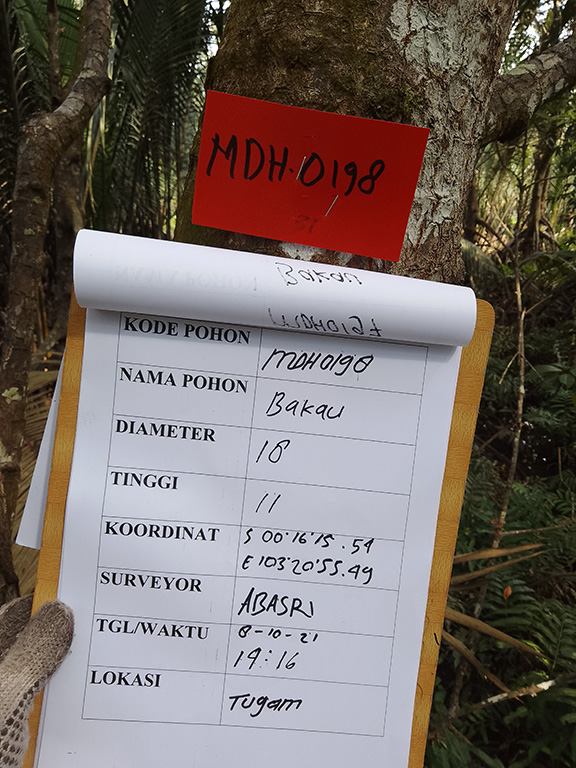 MDH.0198
Bakau
MDH0197
KODE POHON MDH0198
NAMA POHON Bakau
DIAMETER 18
TINGGI 11
KOORDINAT S 00°16'15.54
E 103°20'55.49
SURVEYOR ABASRI
TGL/WAKTU 8-10-21
14:16
LOKASI Tugam